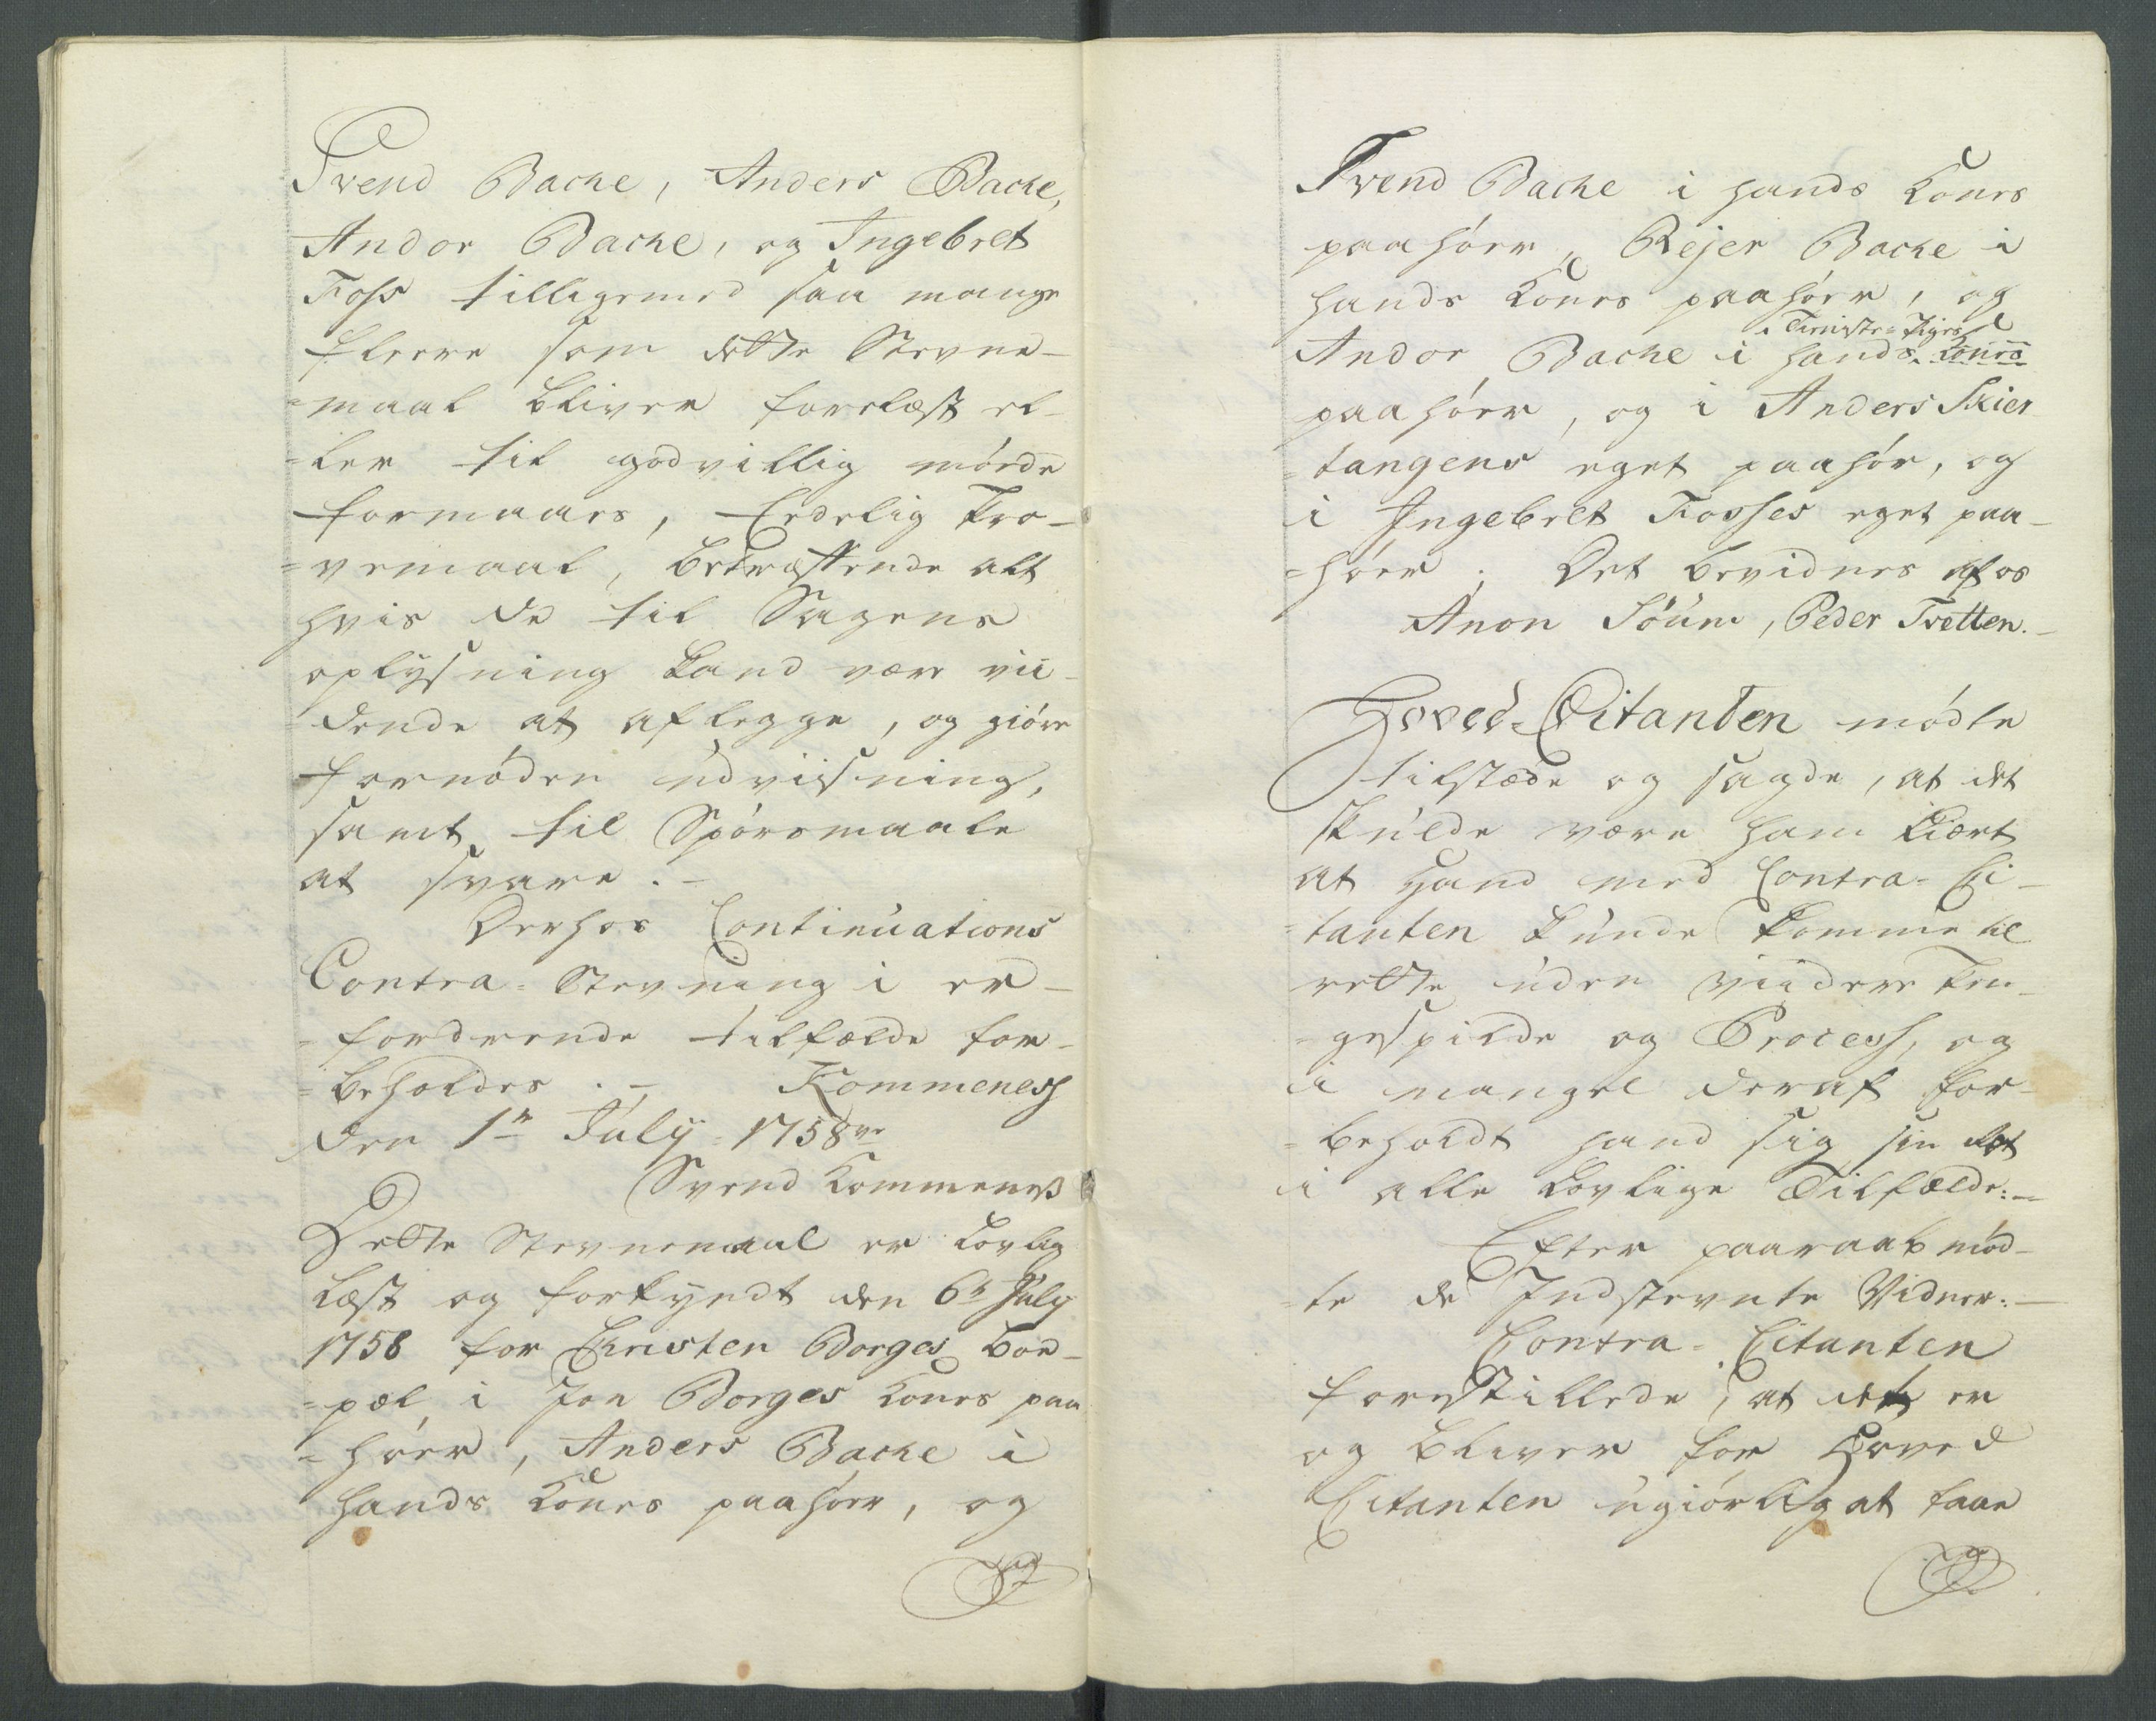 Svend Bache, Anders Bache,
Andor Bache, og Ingebret
Foss tilligemed saa mange
fleere som dette Stevne-
=maal bliver forelæst el-
=ler til godvillig møde
formaaes, Eedelig Pro-
=vemaal, betræffende alt
hvis de til Sagens
oplysning kand være vii-
=dende at aflegge, og giöre
fornöden udviisning,
samt til Spörsmaale
at svare.-
Derhos Continuations
Contra-Stevning i er-
=fordrende tilfælde for-
=beholdes.- Kommeness
den 1te July 1758ve
Svend Kommeness
Dette Stevnemaal er Lovlig
Læst og forkyndt den 6te July
1758 for Christen Borges Boe-
=pæl i Jon Borges Kones paa
=hörr, Anders Bache i
hands Kones paahörr, og
Svend Bache i hands Kones
paahörr, Rejer Bache i
hands Kones paahörr, og
Tieniste-Piges
Andor Bache i hands Kones
paahörr, og i Anders Skier
=tangens eget paahör, og
i Ingebret Fosses eget paa-
=hörr. Det bevidnes af os
Anon Söum, Peder Tvetten.-
Hoved-Citanten mödte
tilstæde og sagde, at det
skulde være ham kiært
at hand med Contra-Ci-
=tanten kunde komme til
rette uden viidere Pen-
=gespilde og Process, og
i mangel deraf for-
=beholdt hand sig sin Ret
i alle Lovlige Tilfælde.-
Efter paaraab möd-
=te de Indstevnte Vidner.-
Contra-Citanten
forestillede, at det er
og bliver for Hoved
Citanten ugiörlig at faae